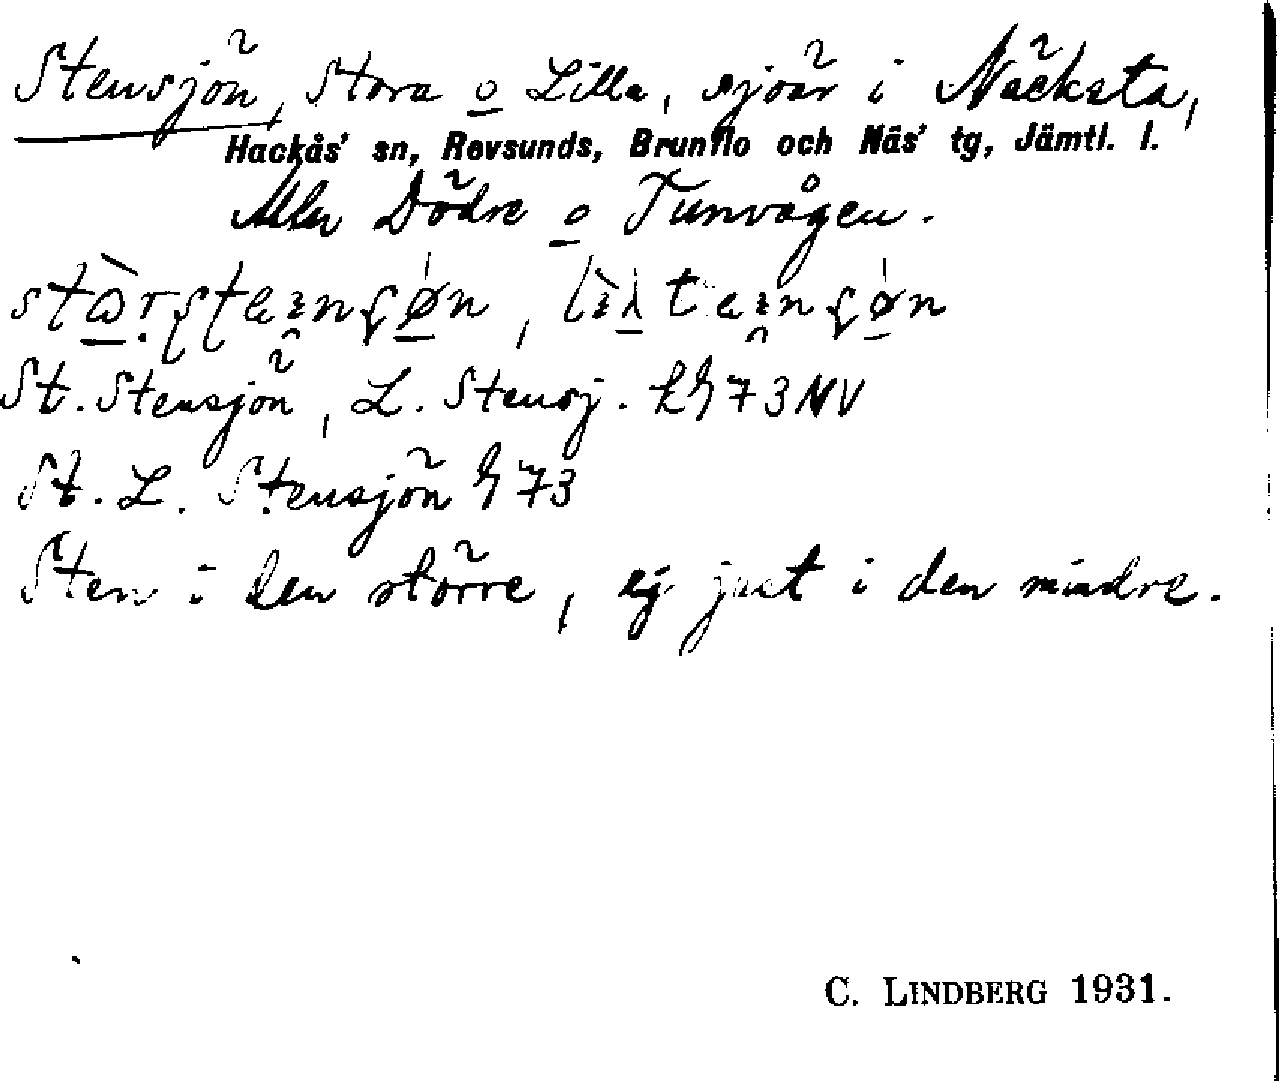 Stensjön, Stora o Lilla, sjöar i Näcksta,
Hackås' sn, Revsunds, Brunflo och Näs' tg, Jämtl. l.
Mellan Dödre o Tunvågen.
St. Stensjön, L. Stensj. 73 NV
St. L. Stensjön 73
Sten i den större, ej just i den mindre.
C. LINDBERG 1931.